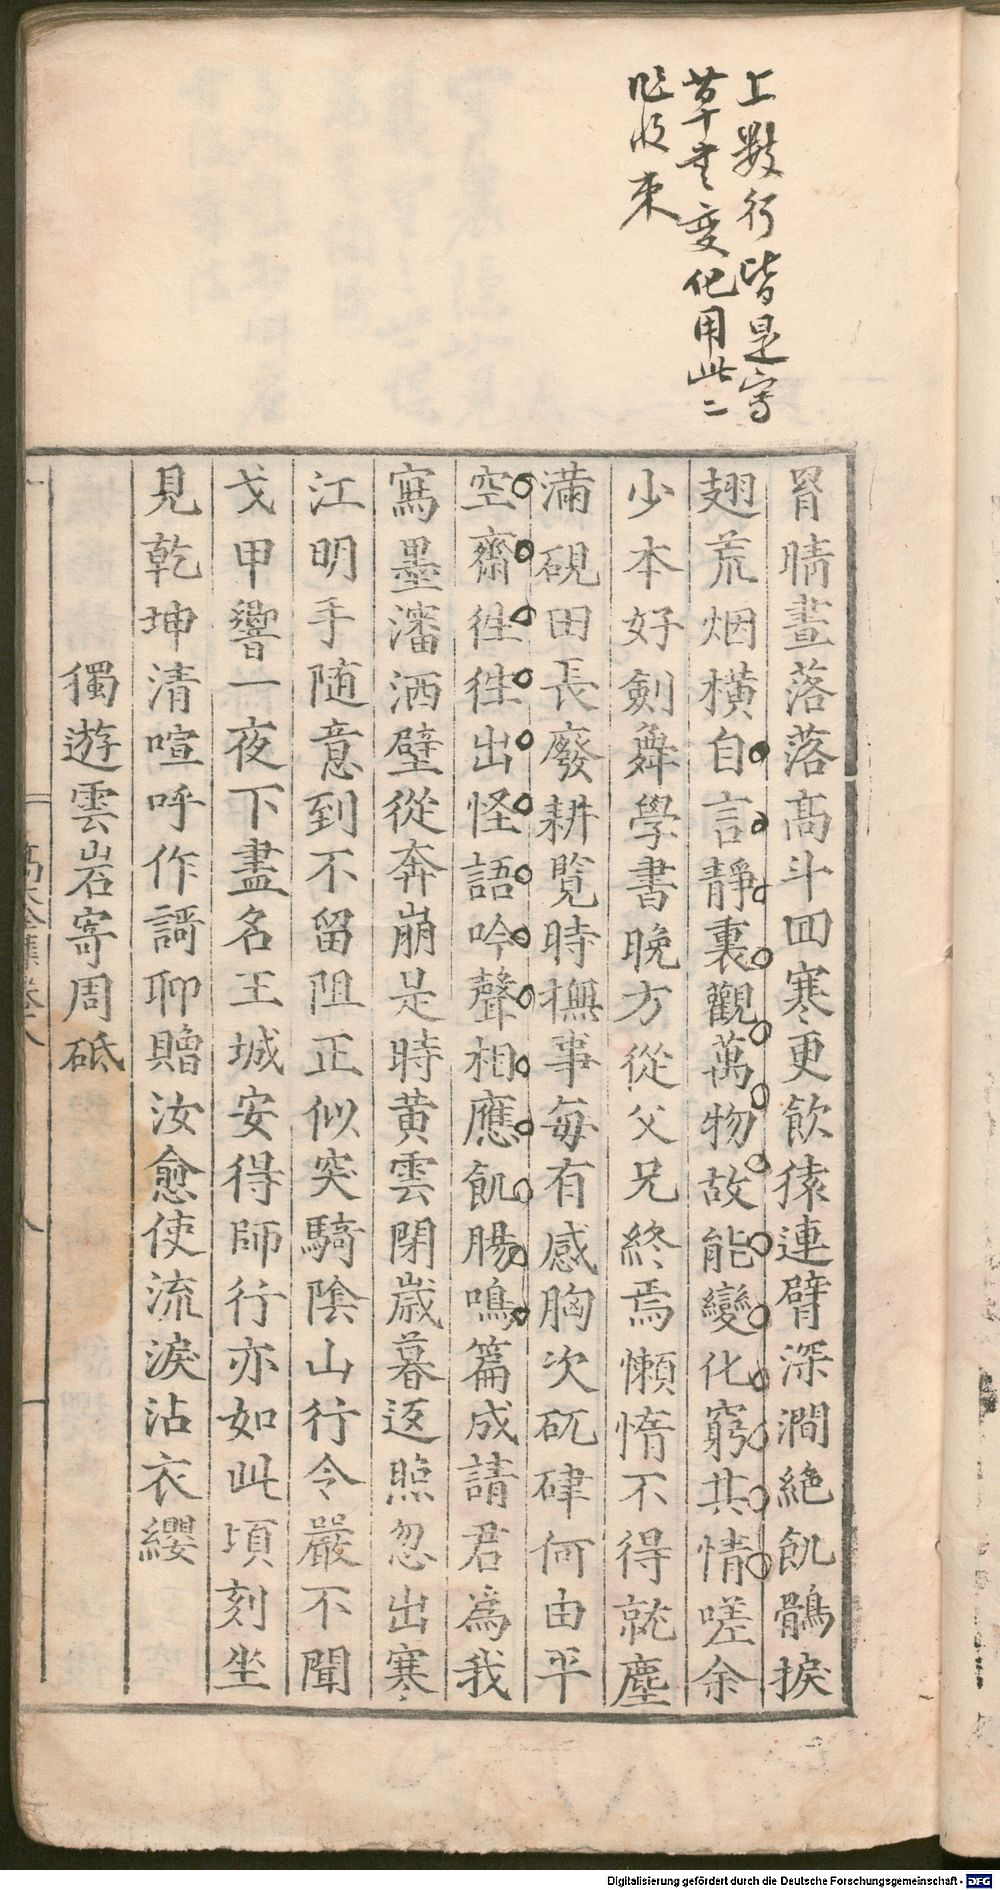 上數行皆是寫
草書變化用此二
收束
胃晴晝落落高斗回寒更飲猿連臂深澗絶飢鶻捩
翅荒烟橫自言靜裏觀萬物故能變化窮其情嗟余
少本好劍舞學書晚方從父兄終焉懶惰不得就塵
滿硯田長廢耕覧時撫事每有感胸次矹硉何由平
空齋徃徃出怪語吟聲相應飢腸鳴篇成請君為我
寫墨瀋洒壁從奔崩是時黃雲閉歲暮返照忽出寒
江明手随意到不留阻正似突騎陰山行令嚴不聞
戈甲響一夜下盡名王城安得師行亦如此頃刻坐
見乾坤清喧呼作謌聊贈汝愈使流淚沾衣纓
獨遊雲岩寄周砥
Digitalisierung gefördert durch die Deutsche Forschungsgemeinschaft - DFG